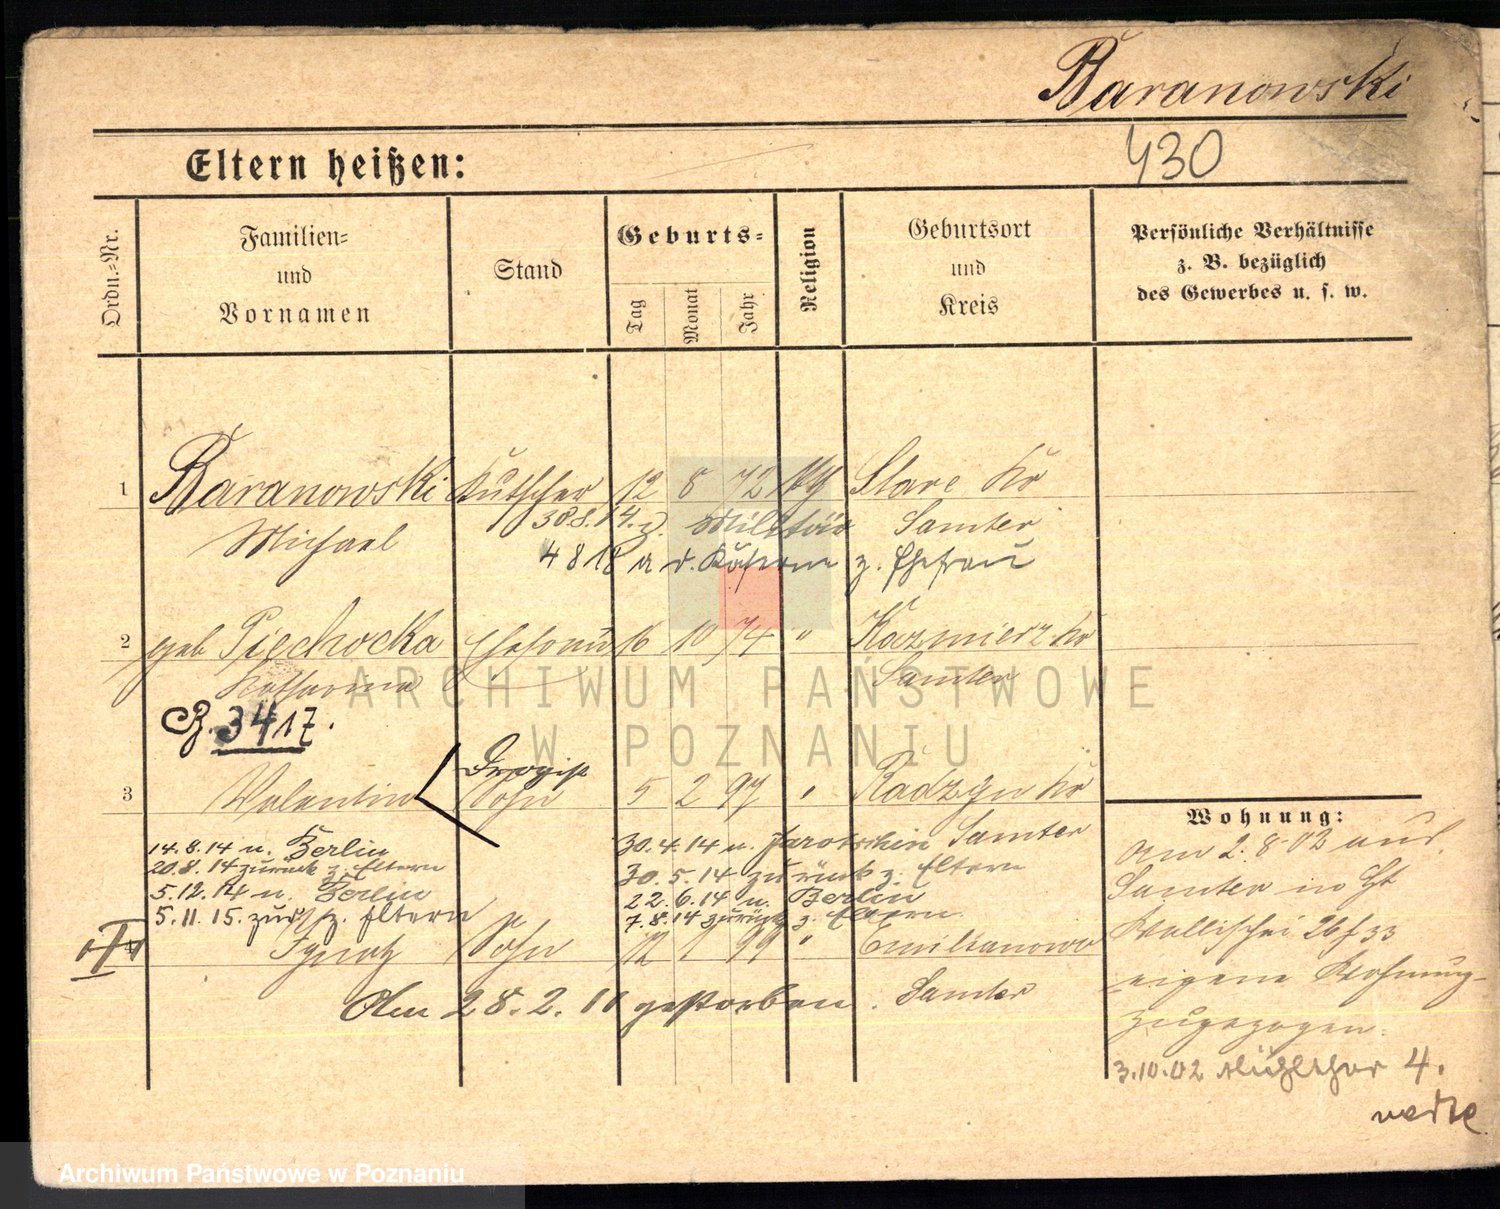 Baranowski
430
Eltern heißen:
Ordn.-Nr.
Familien-
und
Vornamen
Stand
Geburts-
Tag
Monat
Jahr
Religion
Geburtsort
und
Kreis
Persönliche Verhältnisse
z. B. bezüglich
des Gewerbes u. s. w.
1 Baranowski Kutscher 12 8 72 Stare Kr
Michael 30.8.14. z. Militär Samter
4 8 18 a d. Kaserne z. Ehefrau
2 geb Piechocka Ehefrau 16 10 74 " Kazmierz Kr
Katharina Samter
3417.
Drogist
3 Valentin Sohn 5 2 97 " Radzyn Kr
Samter
14.8.14 n. Berlin
20.8.14 zurück z. Eltern
5.12.14 n. Berlin
5.11.15. zur z. Eltern
30.4.14 n. Jarotschin
30.5.14 zurück z. Eltern
22.6.14 n. Berlin
7.8.14 zurück z. Eltern.
4 Ignatz Sohn 12 1 99 " Emilianowo
Samter
Am 28.2.11 gestorben.
Wohnung:
Am 2.8.02 aus
Samter in
Wallischei 26/33
eigene Wohnung
zugezogen.
3.10.02 Mühlthor 4.
ARCHIWUM PAŃSTWOWE
W POZNANIU
Archiwum Państwowe w Poznaniu